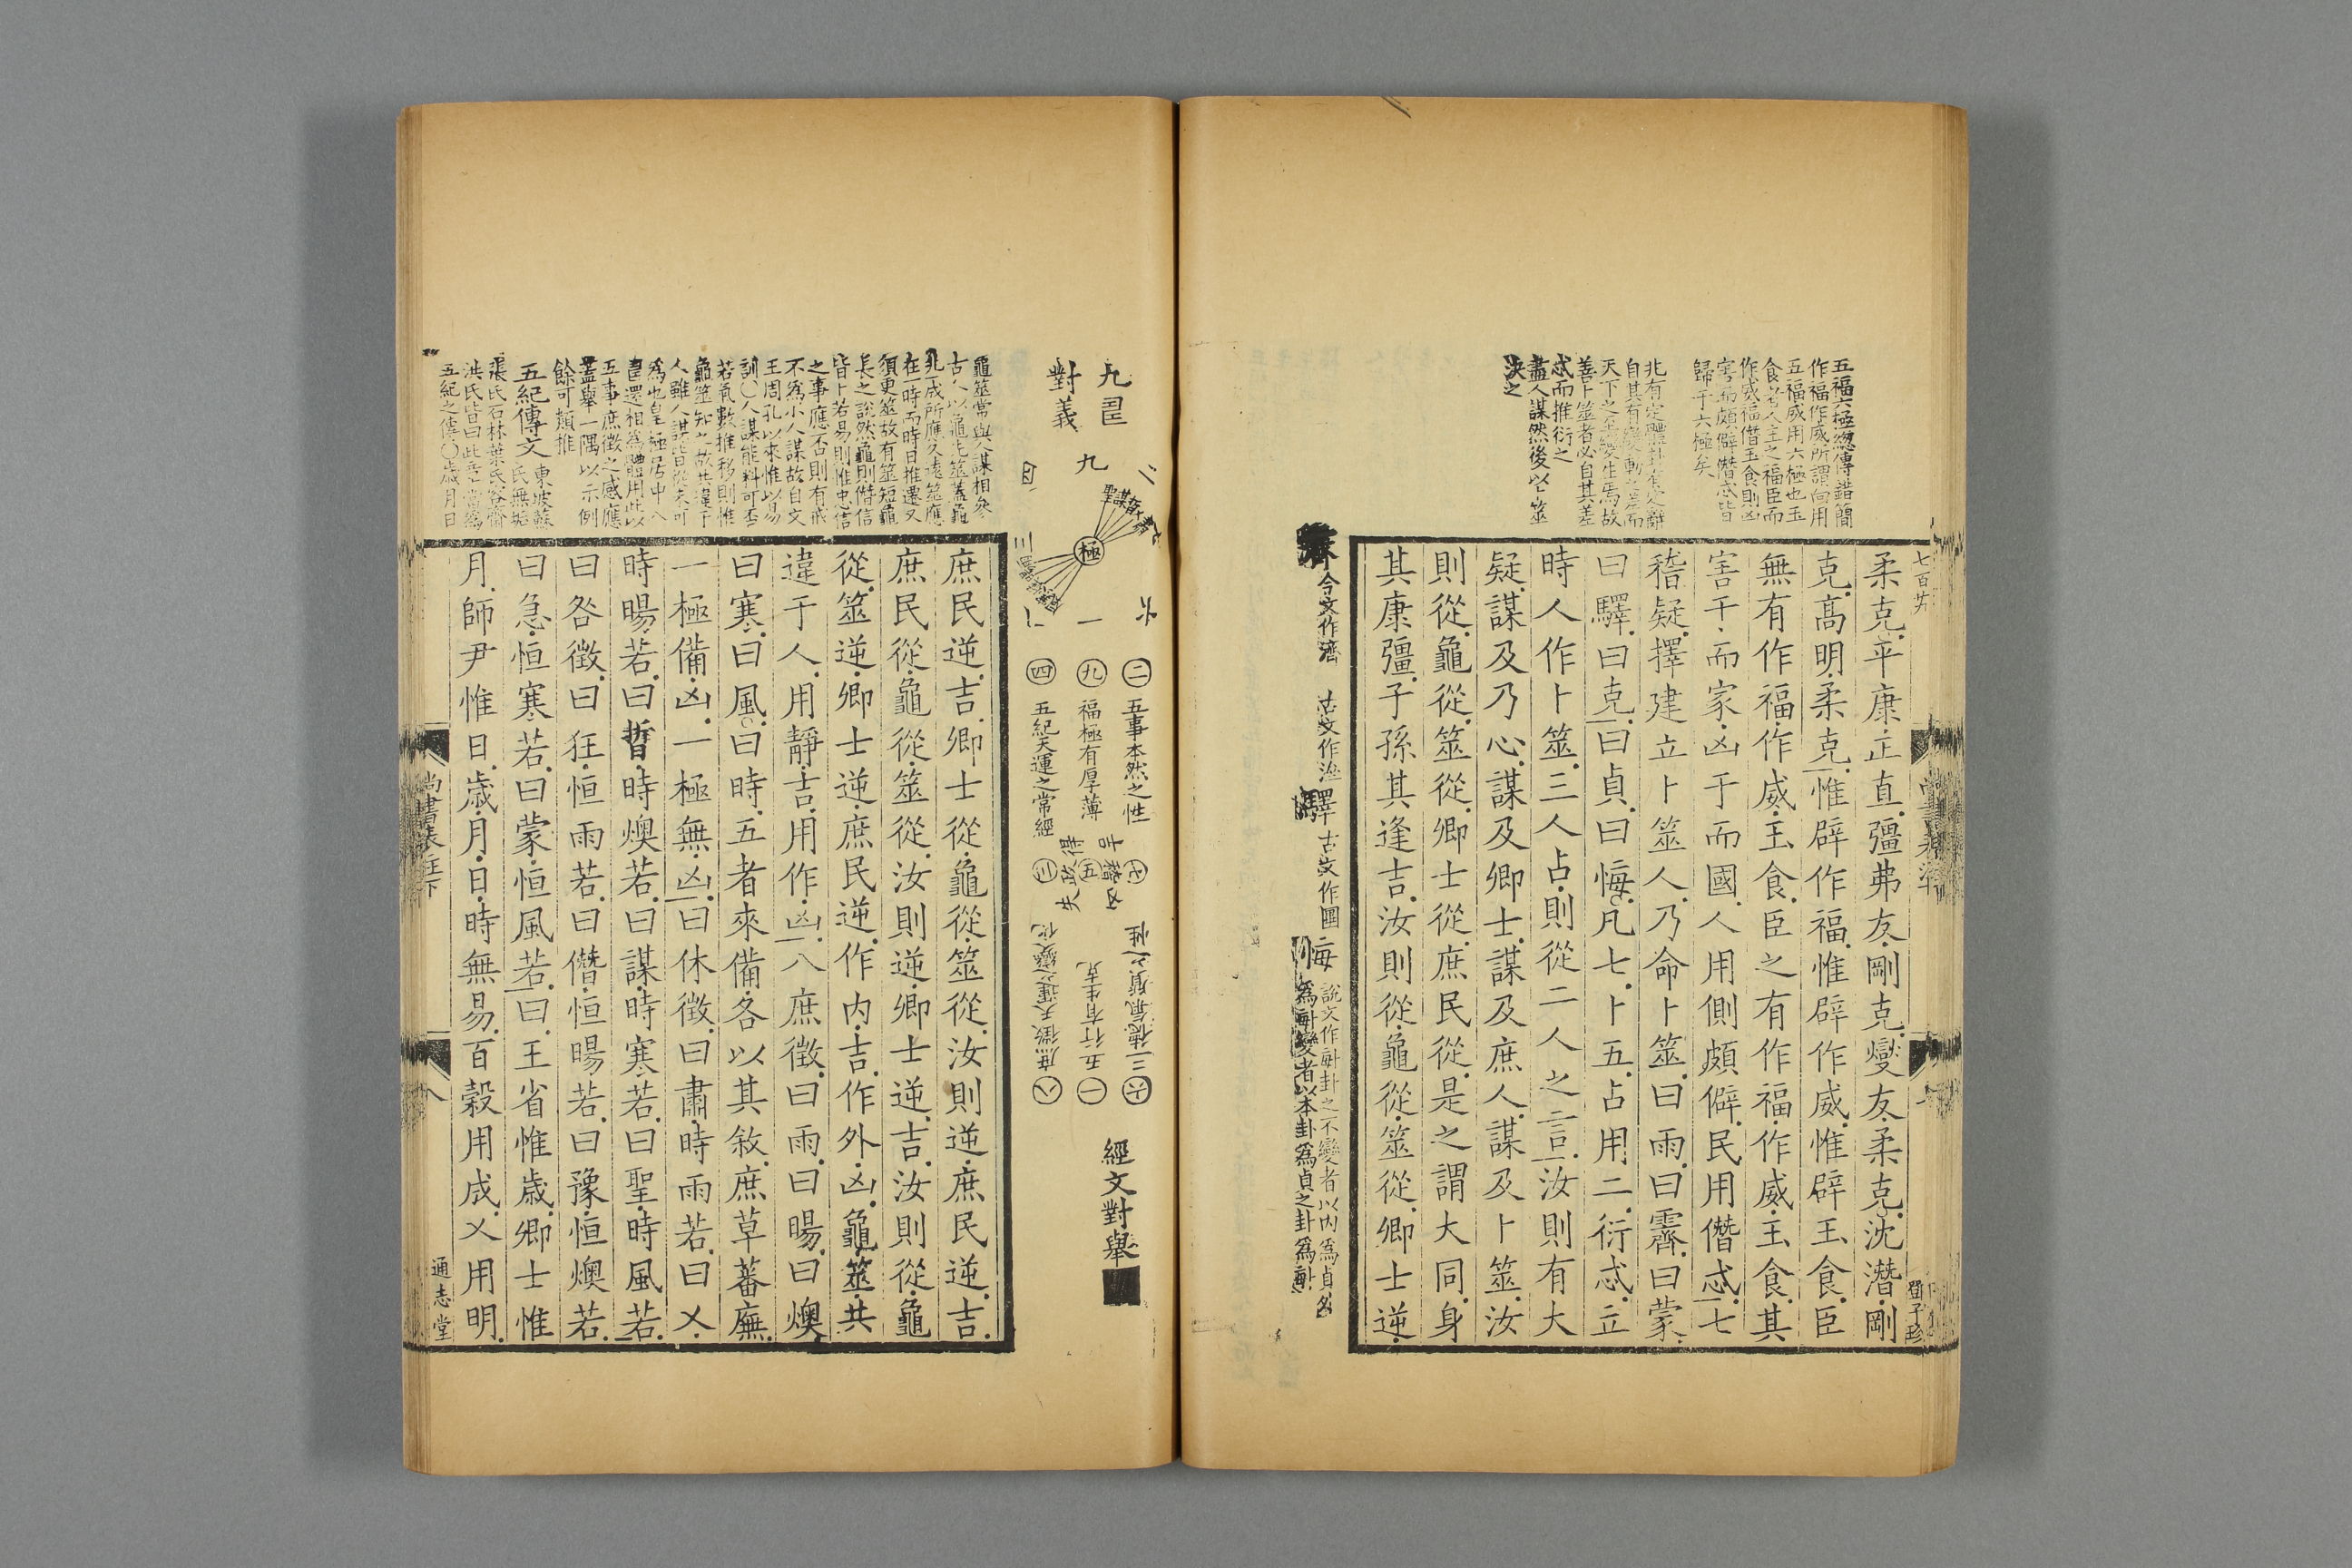 五福六極總傳錯簡
作福作威所謂向用
五福威用六極也玉
食者人主之福臣而
作威福僭玉食則凶
害而頗僻僭忒皆
歸于六極矣
兆有定體卦有定辭
自其有變動之差而
天下之至變生焉故
善卜筮者必自其差
忒而推衍之
盡人謀然後以卜筮
決之
柔克平康正直彊弗友剛克燮友柔克沈潛剛
克高明柔克惟辟作福惟辟作威惟辟玉食臣
無有作福作威玉食臣之有作福作威玉食其
害于而家凶于而國人用側頗僻民用僭忒七
稽疑擇建立卜筮人乃命卜筮曰雨曰霽曰蒙
曰驛曰克曰貞曰悔凡七卜五占用二衍忒立
時人作卜筮三人占則從二人之言汝則有大
疑謀及乃心謀及卿士謀及庶人謀及卜筮汝
則從龜從筮從卿士從庶民從是之謂大同身
其康彊子孫其逢吉汝則從龜從筮從卿士逆
今文作濟 古文作 驛 古文作圛 悔 說文作𠧩卦之不變者以內為貞名
為𠧩變者以本卦為貞之卦為𠧩
九
對義
九
極
一
㊁ 五事本然之性
㊈ 福極有厚薄
㊃ 五紀天運之常經
㊆
㊄
㊂
得
失
吉
凶
㊅ 三德氣質之性
㊀ 五行有生克
㊇ 庶徵天運之變化
經文對舉
龜筮常與人謀相參
古人以龜先筮蓋龜
兆一成所應久遠筮應
在一時而時日推遷又
須更筮故有筮短龜
長之說然龜則僭信
皆卜若易則惟忠信
之事應否則有戒
不為小人謀故自文
王周孔以來惟以易
訓〇人謀能料可否
若氣數推移則惟
龜筮知之故共違于
人雖人謀皆從未可
為也皇極居中八
疇還相為體用此以
五事庶徵之感應
蓋舉一隅以示例
餘可類推
五紀傳文 東坡蘇
氏無垢
張氏石林葉氏容齋
洪氏皆曰此章當為
五紀之傳〇歲月日
庶民逆吉卿士從龜從筮從汝則逆庶民逆吉
庶民從龜從筮從汝則逆卿士逆吉汝則從龜
從筮逆卿士逆庶民逆作內吉作外凶龜筮共
違于人用靜吉用作凶八庶徵曰雨曰暘曰燠
曰寒曰風曰時五者來備各以其敘庶草蕃廡
一極備凶一極無凶曰休徵曰肅時雨若曰乂
時暘若曰晢時燠若曰謀時寒若曰聖時風若
曰咎徵曰狂恒雨若曰僭恒暘若曰豫恒燠若
曰急恒寒若曰蒙恒風若曰王省惟歲卿士惟
月師尹惟日歲月日時無易百穀用成乂用明
尚書表注下
八
通志堂